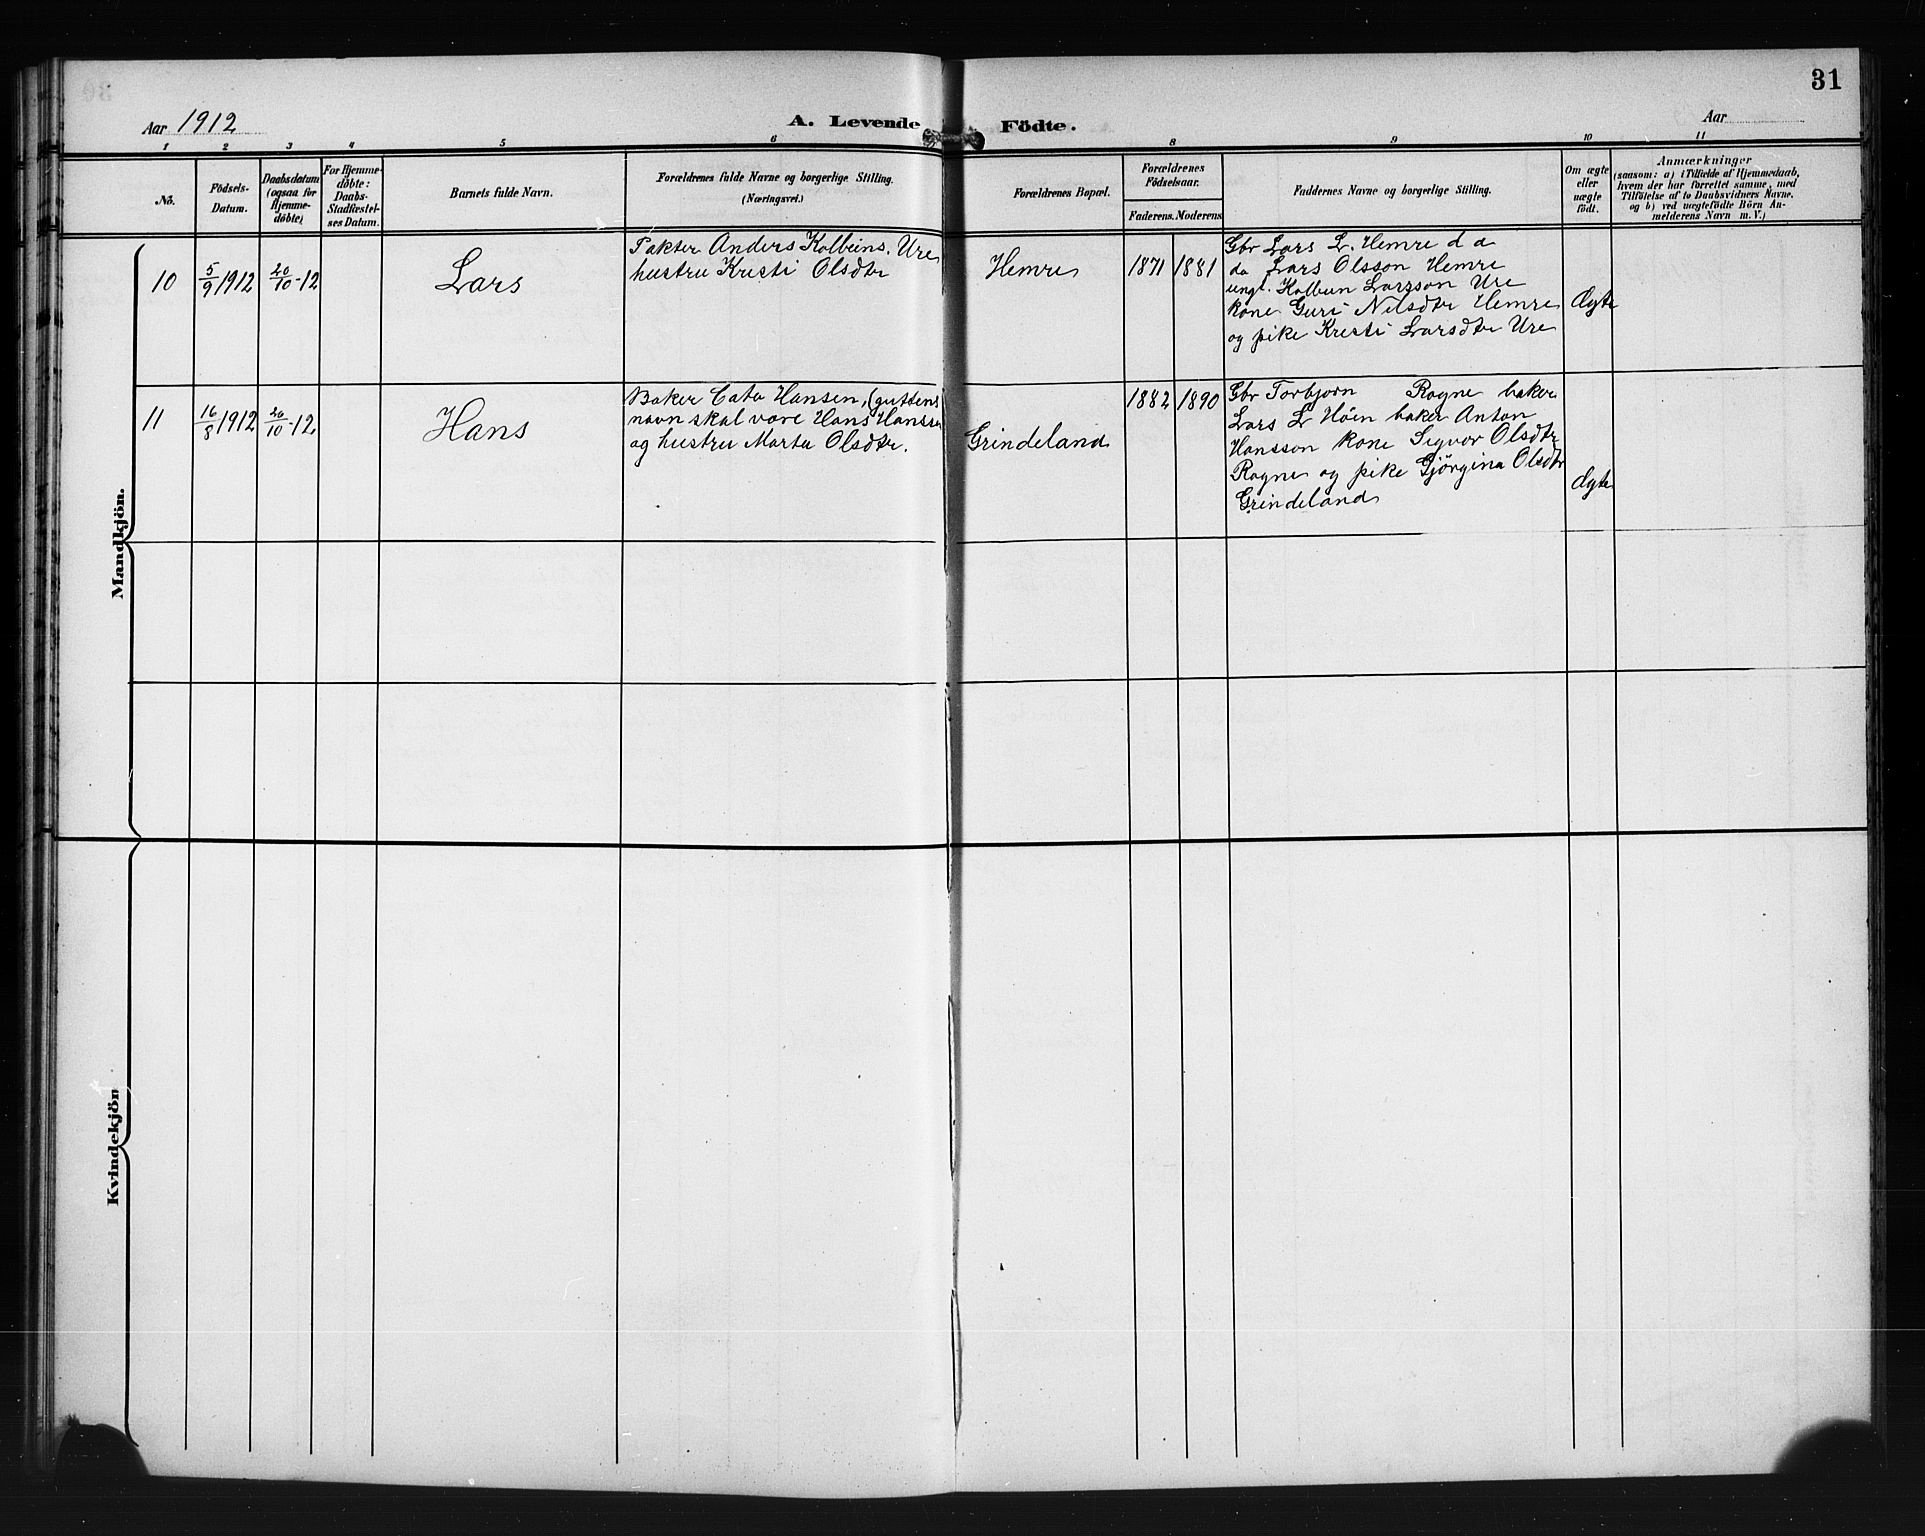 31
Aar 1912
A. Levende Födte.
Aar
1 2 3 4 5 6 8 9 10 11
No.
Födsels-
Datum.
Daabsdatum
(ogsaa for
Hjemme-
döbte)
For Hjemme-
döbte:
Daabs-
Stadfæstel-
ses Datum.
Barnets fulde Navn.
Forældrenes fulde Navne og borgerlige Stilling.
(Næringsvei.)
Forældrenes Bopæl.
Forældrenes
Födselsaar.
Faderens. Moderens
Faddernes Navne og borgerlige Stilling.
Om ægte
eller
uægte
födt.
Anmærkninger
(saasom: a) i Tilfælde af Hjemmedaab,
hvem der har forrettet samme, med
Tilföielse af to Daabsvidners Navne.
og b) ved uægtefödte Börn An-
melderens Navn m. V.)
Mandkjön.
10
5/9 1912
20/10-12
Lars
Pakter Anders Kolbeins. Ure
hustru Kristi Olsdtr
Hemre
1871 1881
Gbr Lars L. Hemre d a
do Lars Olsson Hemre
ungk. Kolbein Larsson Ure
kone Guri Nilsdtr Hemre
og pike Kristi Larsdtr Ure
Ægte
11
16/8 1912
20/10-12.
Hans
Baker Cato Hansen, (guttens
navn skal være Hans Hansse
og hustru Marta Olsdtr.
Grindeland
1882 1890
Gbr Torbjørn Rogne baker
Lars L Höin baker Anton
Hansson kone Sigvor Olsdtr
Rogne og pike Gjörgina Olsdtr
Grindeland
Ægte
Kvindekjön